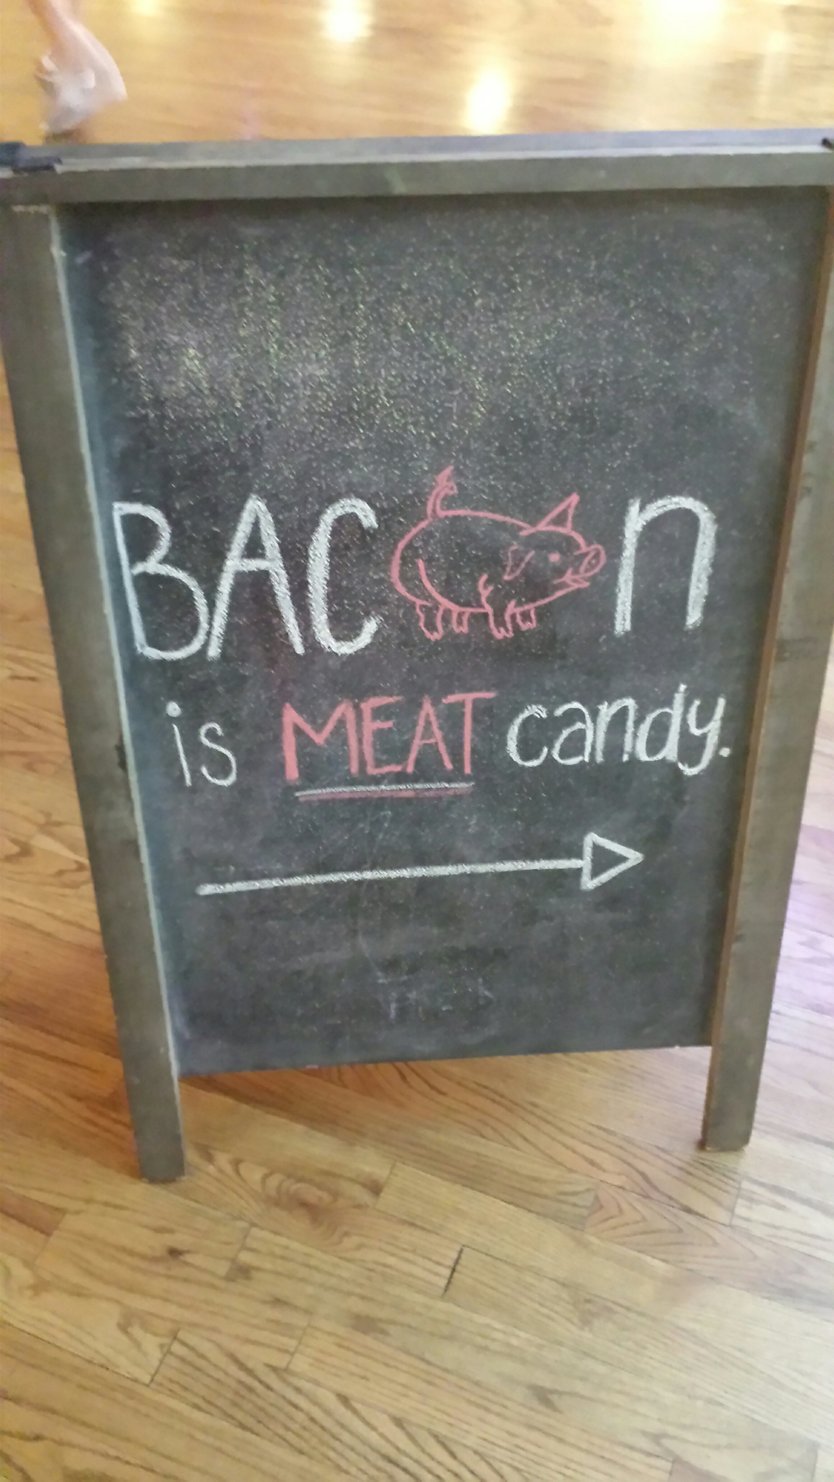 BACOn
is MEAT candy.